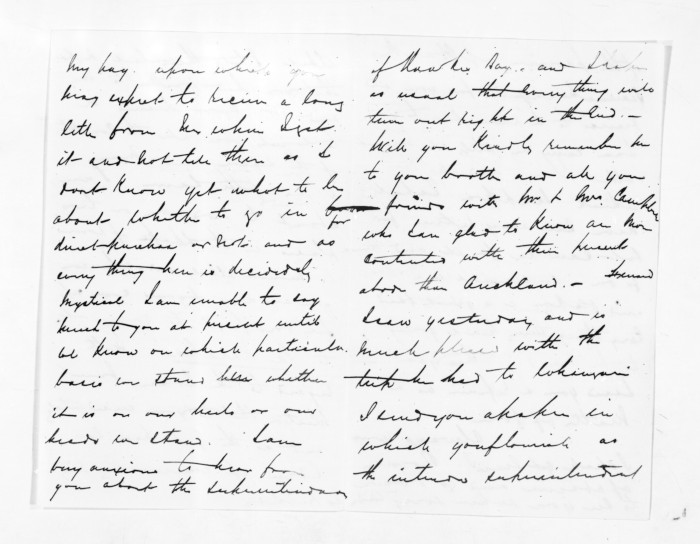 my pay upon which you
may expect to receive a long
letter from me when I get
it and not till then as I
dont know yet what to be
about whether to go in for
direct purchase or not and as
every thing here is decidedly
mystical I am unable to say
much to you at present until
we know on which particular
basis we stand whether
it is on our heels or our
heads we stand. I am
very anxious to hear from
you about the superintendence
of Hawkes Bay. and I
as usual that every thing will
turn out right in the end.—
Will you kindly remember me
to your and all your
friends with Mr & Mrs
who I am glad to know are more
contented with their present
abode than Auckland.—
I saw yesterday and is
much pleased with the
trip he had to
I send you a in
which you flourish as
the intended superintendent